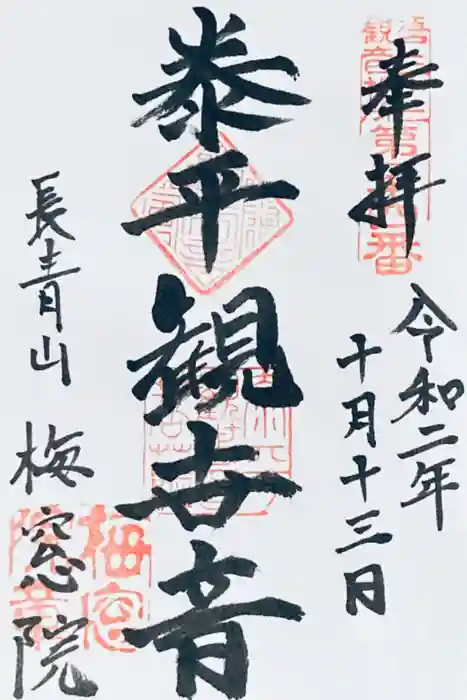 奉拝
令和二年
十月十三日
泰平観世音
長青山 梅窓院